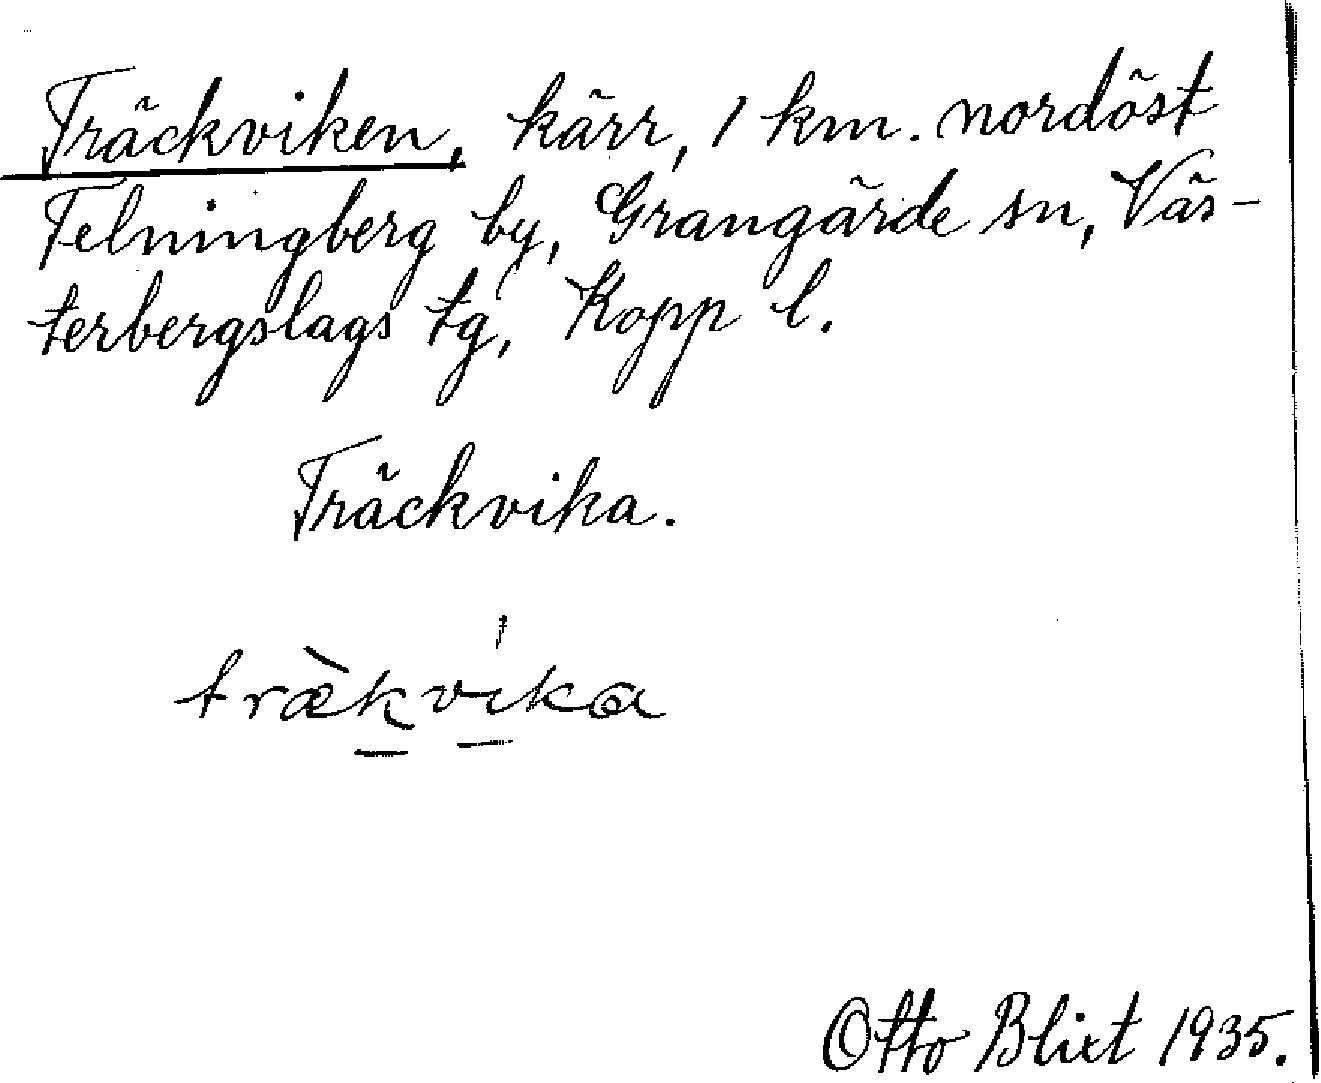 Träckviken, kärr, 1 km. nordöst
Felningberg by, Grangärde sn, Väs-
terbergslags tg, Kopp l.
Träckvika.
trækvika
Otto Blixt 1935.